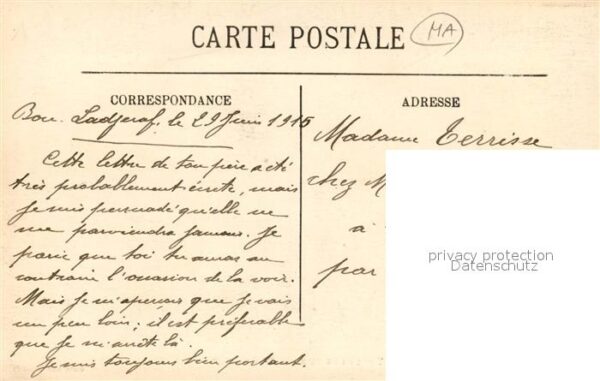 CARTE POSTALE
MA
CORRESPONDANCE
ADRESSE
Bou. Ladjeraf, le 29 Juin 1915
Cette lettre de ton père a été
très probablement écrite, mais
je suis persuadé qu'elle ne
me parviendra jamais. Je
parie que toi tu auras au
contraire l'occasion de la voir.
Mais je m'aperçois que je vais
un peu loin; il est préférable
que je m'arrête là.
Je suis toujours bien portant.
Madame Terrisse
chez M
à
par
privacy protection
Datenschutz